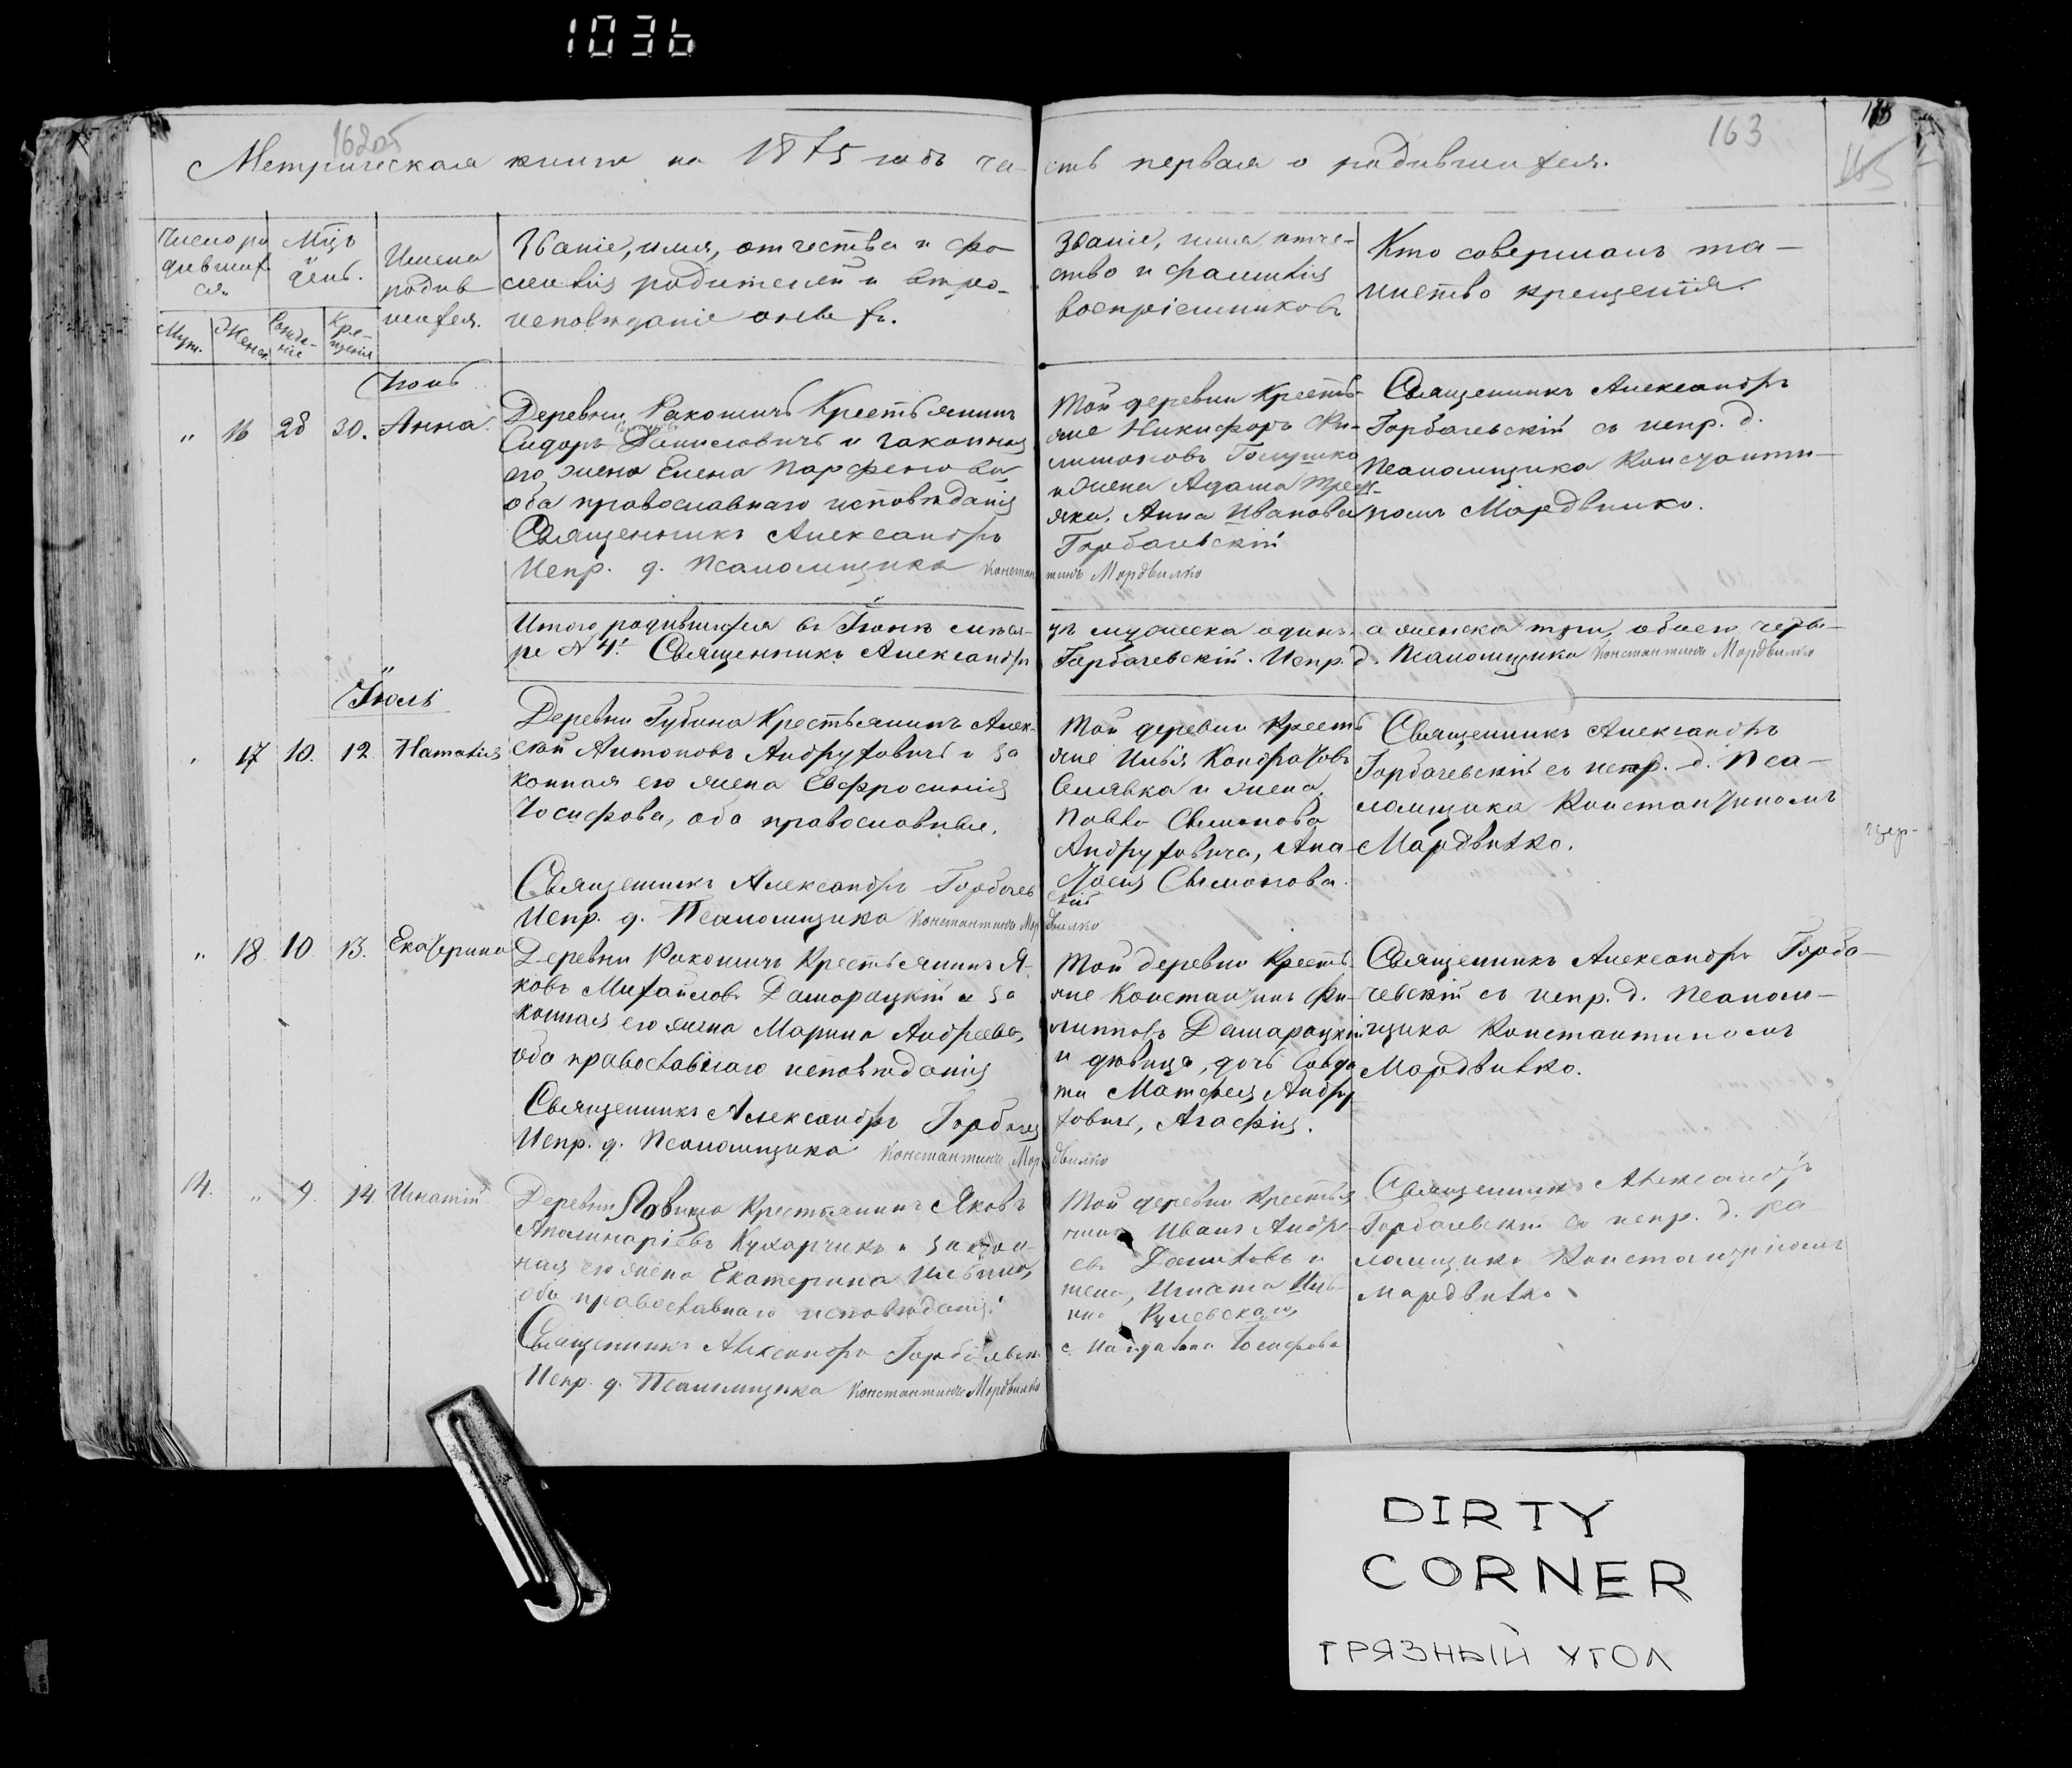 1036
162об
163
Метрическая книга на 1875 годъ ча-
сть первая о родившихся.
Число ро
дивших
ся.
Мцъ
и
день.
Имена
родив
шихся.
Званіе, имя, отчества и фа
милія родителей и вѣро-
исповѣданіе
Званіе, имя отче-
ство и фамилія
воспріемниковъ
Кто совершалъ та-
инство крещенія.
Муж.
Женс.
Рожде-
ніе
Кре-
щенія
Іюнь
" 16 28 30. Анна.
Деревни Ракошичъ Крестьянинъ
Сидоръ Даниловичъ и законная
его жена Елена Парфенова
оба православнаго исповѣданія
Священникъ Александръ
Испр. д. Псаломщика Констан
Той деревни Кресть-
яне Никифоръ Фи-
лимоновъ Голушко
и жена Адама
Анна Иванова
Горбачевскій
тинъ Мордвилко
Священникъ Александръ
Горбачевскій съ испр. д.
Псаломщика Константи-
номъ Мордвилко.
Итого родившихся въ Іюнѣ мѣся-
цѣ мужеска одинъ, а женска три, обоего
ре № 4. Священникъ Александръ
Горбачевскій. Испр. д. Псаломщика Константинъ Мордвилко
Іюль
17 10. 12 Наталія
Деревни Губина Крестьянинъ Алек-
сѣй Антоновъ Андруховичъ и за
конная его жена Евфросинія
Іосифова, оба православные.
Священникъ Александръ Горбачев
Испр. д. Псаломщика Константинъ Мор
Той деревни Кресть
яне Илья Кондратовъ
Семявка и жена
Павла Симонова
Андруховича, Ана-
стасія Симонова.
кій
двилко
Священникъ Александръ
Горбачевскій съ испр. д. Пса-
ломщика Константиномъ
Мордвилко.
" 18 10 13. Екатерина
Деревни Ракошичъ Крестьянинъ Я-
ковъ Михайловъ Дашорацкій и за
конная его жена Марина Андреева,
оба православнаго исповѣданія
Священникъ Александръ
Испр. д. Псаломщика Константинъ Мор
Той деревни Кресть-
яне Константинъ Фи-
липповъ Дашарацкій
и дѣвица, дочь Солда
та Матфея Андру
ховичъ, Агафія.
двилко
Священникъ Александръ Горба-
чевскій съ испр. д. Псалом-
щика Константиномъ
Мордвилко.
14. " 9. 14 Игнатій
Деревни Явища Крестьянинъ Яковъ
Аполинаріевъ Кухарчикъ и закон-
ная его жена Екатерина Ильина,
оба православнаго исповѣданія.
Священникъ Александръ
Испр. д. Псаломщика Константинъ Мордвилко
Той деревни Крестья
нинъ Иванъ Андре-
евъ Данилов и
жена, Игната Иль-
ина
Іосифова
Священникъ Александръ
Горбачевскій съ испр. д. Пса
ломщика Константиномъ
Мордвилко
DIRTY
CORNER
ГРЯЗНЫЙ УГОЛ